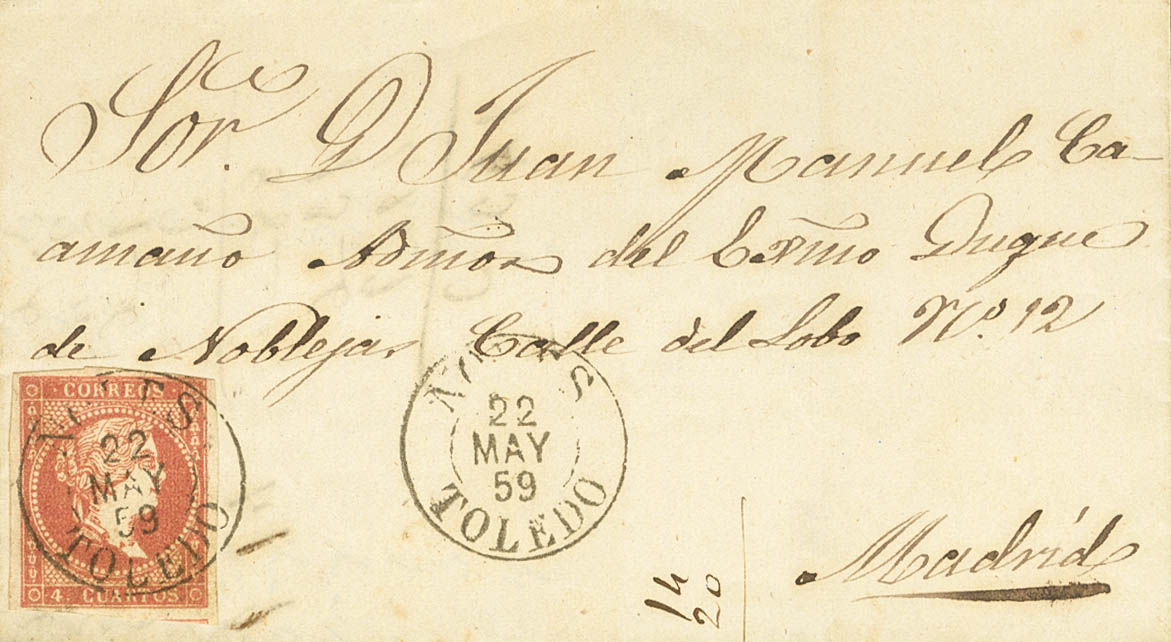 Sor. D Juan Manuel Ca-
amaño Admor del Exmo Duque
de Noblejas Calle del Lobo No. 12
CORREOS
22
MAY
59
TOLEDO
4. CUARTOS
22
MAY
59
TOLEDO
14
20
Madrid